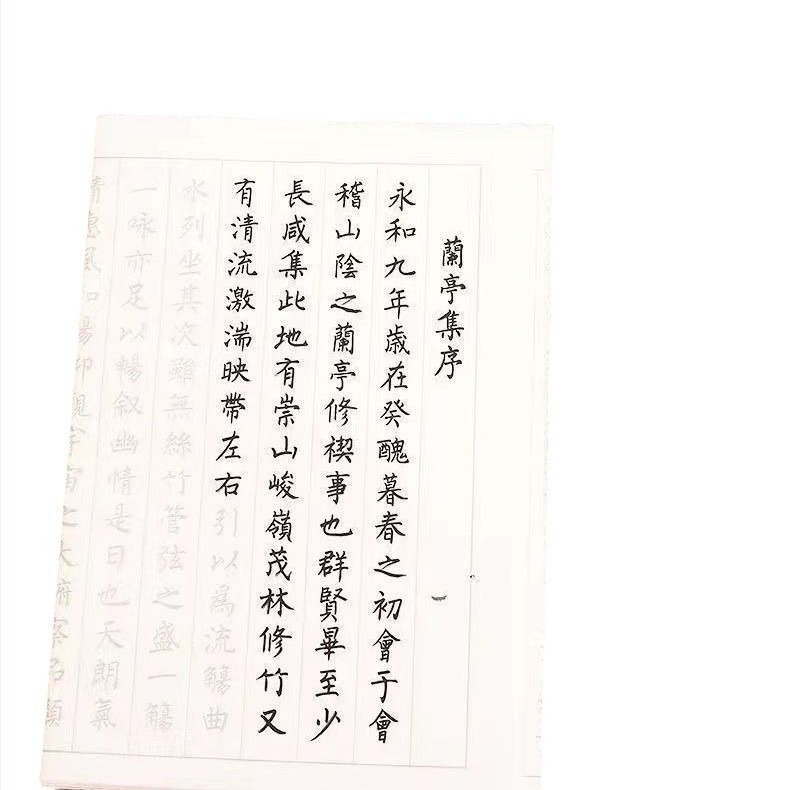 蘭亭集序
永和九年歲在癸醜暮春之初會于會
稽山陰之蘭亭修禊事也群賢畢至少
長咸集此地有崇山峻嶺茂林修竹又
有清流激湍映帶左右引以為流觴曲
水列坐其次雖無絲竹管弦之盛一觴
一咏亦足以暢叙幽情是日也天朗氣
清惠風和暢仰觀宇宙之大俯察品類